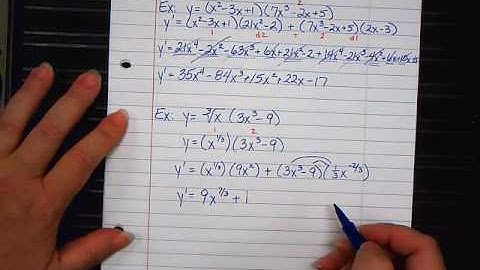 Ex: y = (x² - 3x + 1)(7x³ - 2x + 5)
y' = (x² - 3x + 1)(21x² - 2) + (7x³ - 2x + 5)(2x - 3)
1 d2 2 d1
y' = 21x⁴ - 2x² - 63x³ + 6x + 21x² - 2 + 14x⁴ - 21x³ - 4x² + 6x + 10x
y' = 35x⁴ - 84x³ + 15x² + 22x - 17
Ex: y = ³√x (3x³ - 9)
y = (x^(1/3))(3x³ - 9)
1 2
y' = (x^(1/3))(9x²) + (3x³ - 9)(1/3 x^(-2/3))
y' = 9x^(7/3) +